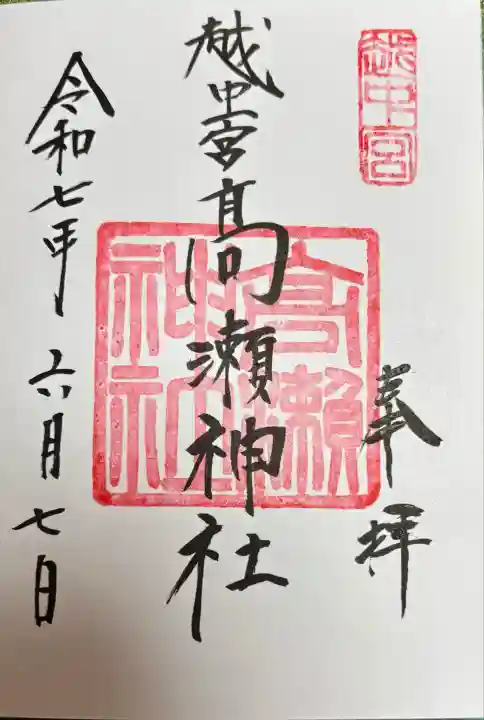 越中宮
奉拝
越中宮髙瀬神社
高瀬神社
令和七年六月七日